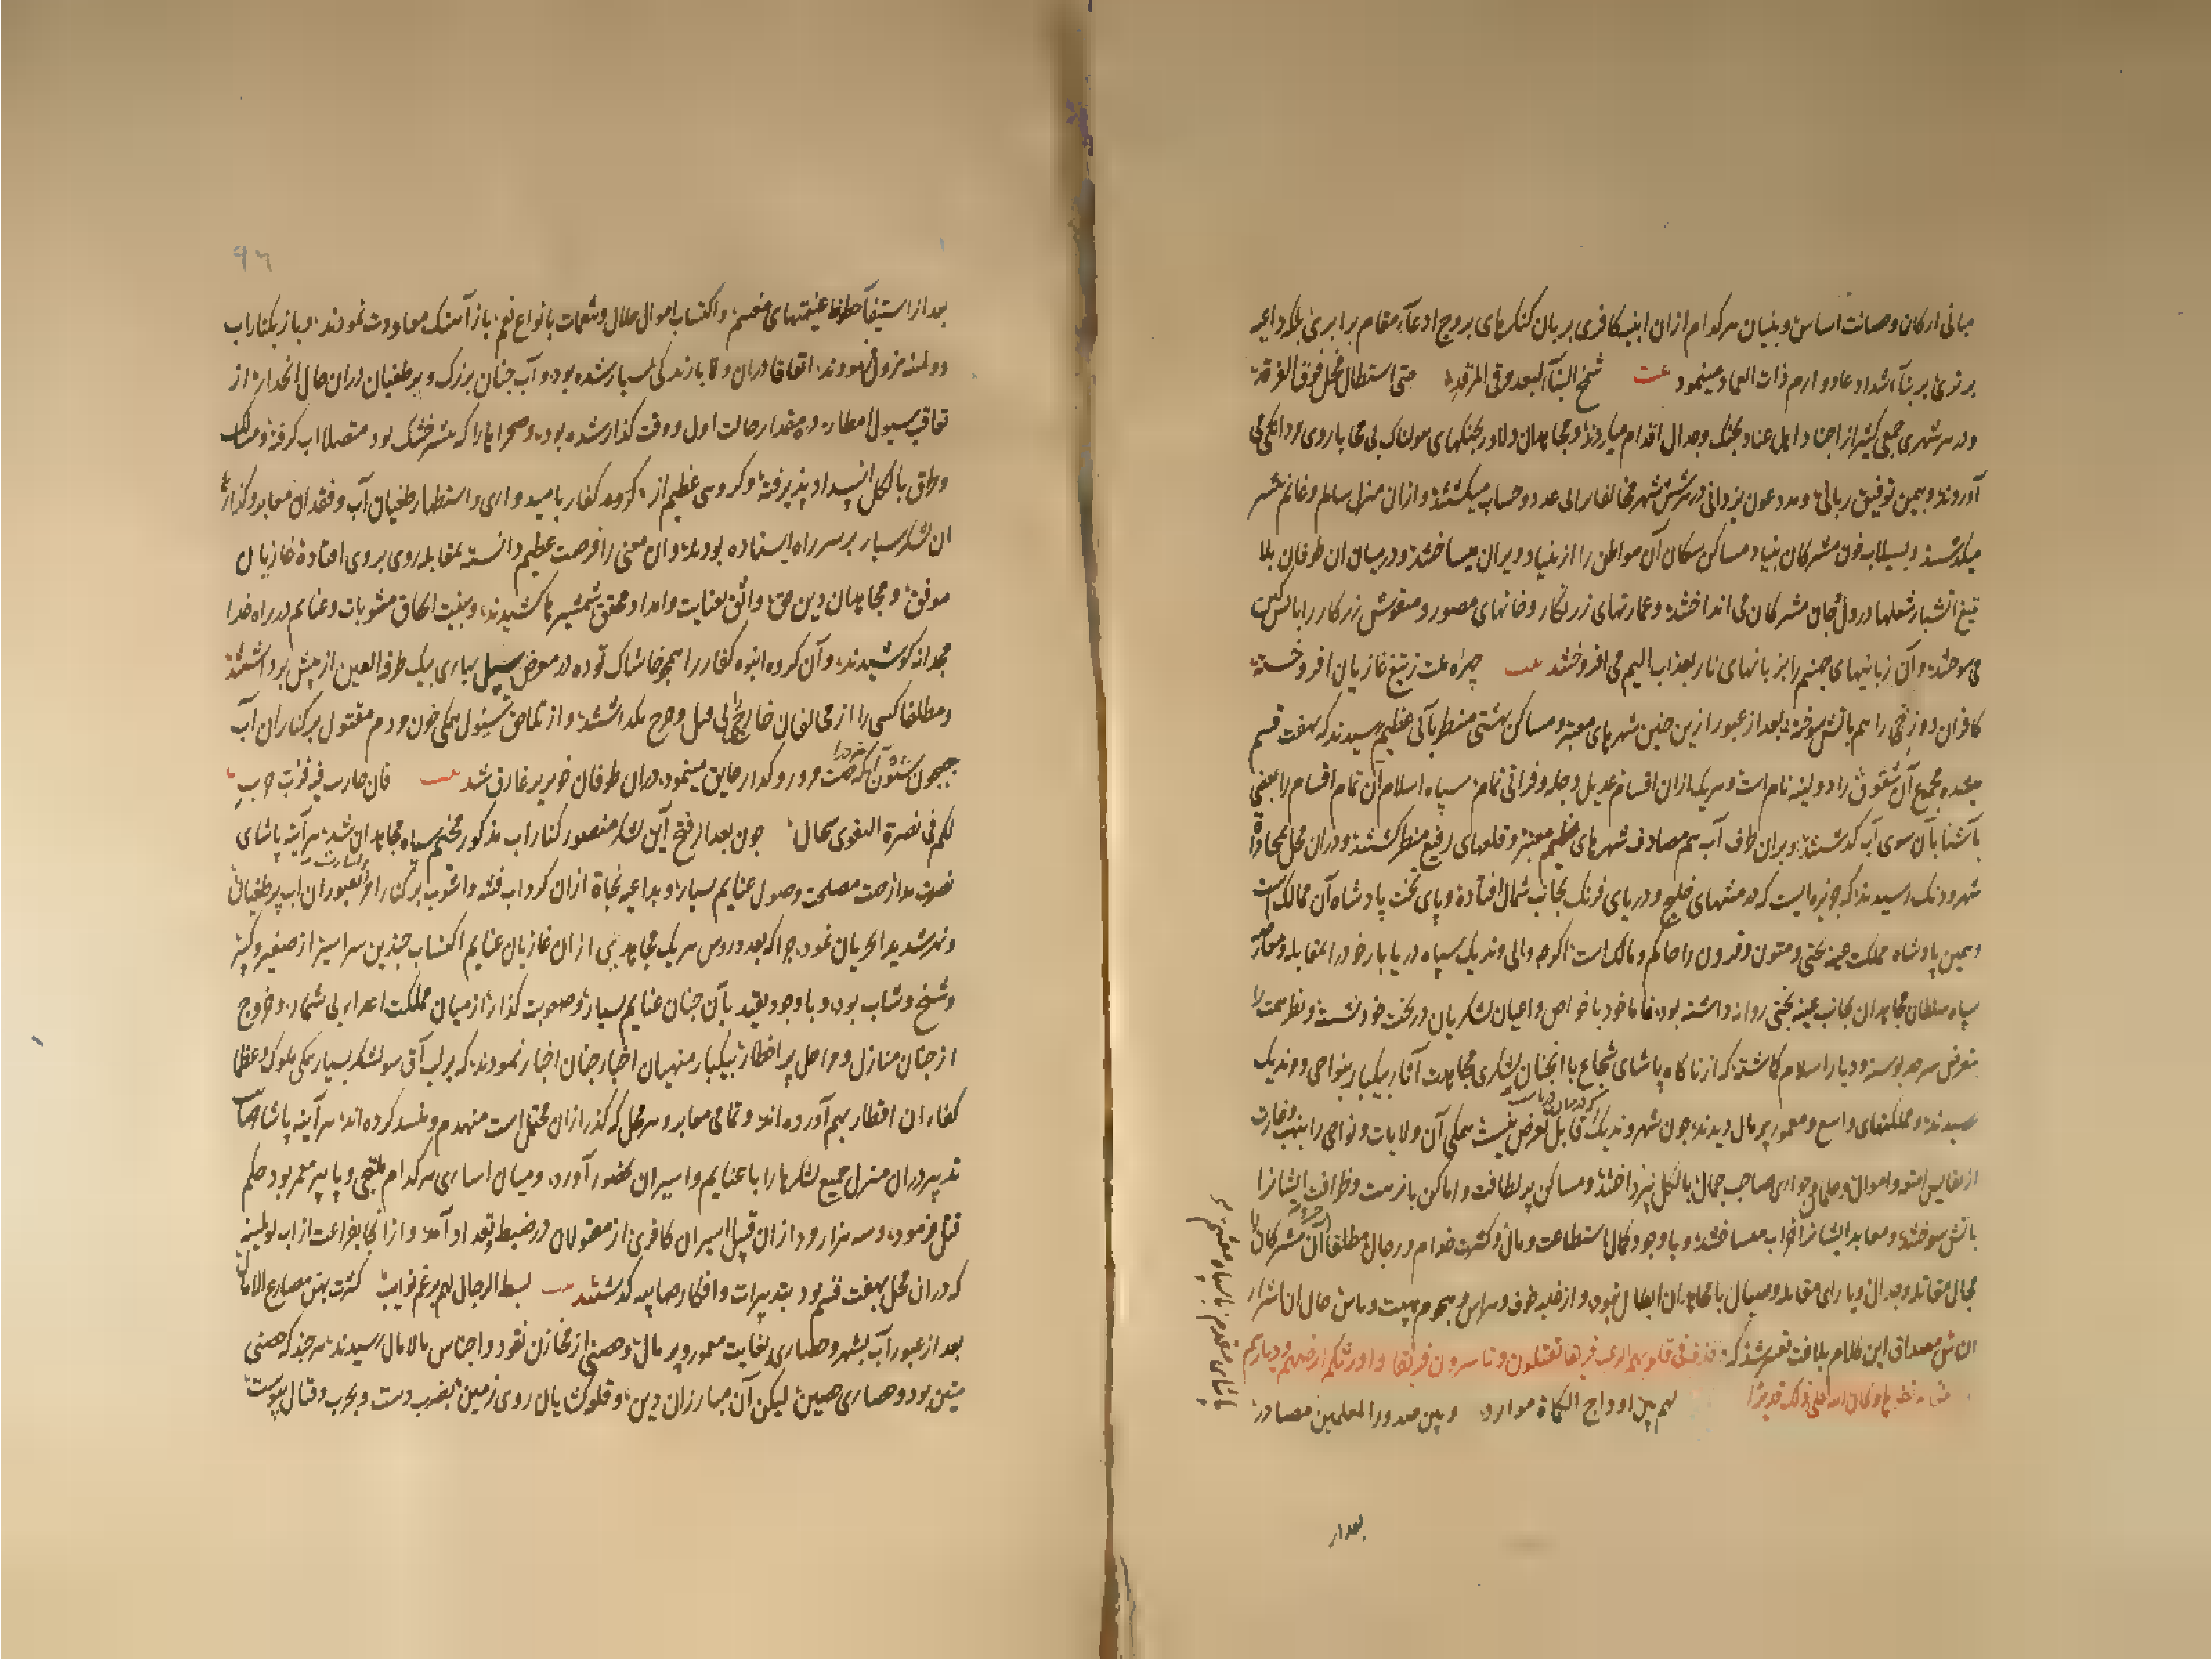 مبانی ارکان و صیانت اساس و بنیان هر کدام ازان ابنیه کافری بر بان کنکرهای بروج ادعاء مقام برابری بلکه داعیه
برتری بر بناء شداد عاد و ارم ذات العماد مینمود بیت شمخ البناء لبعد فوق الفرقد حتی استطال فوق الفرقد
و در هر شهری جمعی کثیر از اجناد اهل عناد بجنک و جدال اقدام میکردند و مجاهدان دلاور بجنکهای هولناک بی محابا روی مردانکی می
آوردند و بیمن توفیق ربانی و مدد عون یزدانی در هر شش شهر مخالفان بی عدد و حساب میکشتند و ازان منزل سالم و غانم
میکذشتند و بسیلاب خون مشرکان بنیاد مساکن سکان آن مواطن را از بنیاد ویران میساختند و در میان ان طوفان بلا
تیغ اتشبار شعلها در دل و جان مشرکان می انداختند و عمارتهای زرنکار و خانهای مصور و منقوش زرکار را باتش کین
می سوختند و آن زبانیهای جهنم را بزبانهای نار بعذاب الیم می افروختند بیت چهره ملت ز تیغ غازیان افروخته
کافران دوزخی را هم باتش سوخته بعد از عبور ازین چنین شهرهای معتبر و مساکن بهشتی منظر بآبی عظیم رسیدند که بهفت قسم
میشده مجموع آن شقوق را دولینه نام است و هر یک ازان اقسام عدیل دجله و فراتی تمام سپاه اسلام آن تمام اقسام را بعضی
بآشنا بآن سوی آب کذشتند و بران طرف آب هم مصادف شهرهای عظیم معتبر و قلعهای رفیع منظر کشتند و دران محل بمحاذاة
شهر ودنک رسیدند که جزیره ایست که در منتهای خلیج و دریای فرنک بجانب شمال افتاده و پای تخت پادشاه آن ممالک است
و همین پادشاه مملکت عینه بختی و متون و قرون را حاکم و مالک است اکرچه والی وندیک سپاه دریابار خود را بمقابله و معارضه
سپاه سلطان مجاهدان بجانب عینه بختی روانه داشته بود فاما خود با خواص و اعیان لشکریان در تخت خود نشسته و نظر همت را
بتعرض سرحد بوسنه و دیار اسلام کماشته که از ناکاه پاشای شجاع با انچنان لشکری مجاهدت آثار بیکبار بنواحی وندیک
رسیدند و مملکتهای واسع و معمور پر مال دیدند چون شهر وندیک قابل تعرض نیست همکی آن ولایات و نواحی را بنهب و غارت
از نفایس امتعه و اموال و غلمان و جواری صاحب جمال بالکل بپرداختند و مساکن پر لطافت و اماکن با نزهت و ظرافت ایشانرا
باتش سوختند و معابد ایشانرا خراب میساختند و با وجود کمال استطاعت و مال و کثرت خدام و رجال مطلقا آن مشرکان را
مجال مقاتله و جدال و یارای مقابله و صیال با مجاهدان ابطال نبود و از غلبه خوف و هراس و هجوم هیبت و باس حال ان اشرار
ان ش مصداق این کلام بلاغت تفسیر شد که قذف فی قلوبهم الرعب فریقا تقتلون و تاسرون فریقا و اورثکم ارضهم و دیارهم
و کان الله علی ذلک قدیرا لهم بین اوداج الکماة موارد و بین صدور المعلمین مصادر
بعد از
بعد از استیفاء حظوظ غنیمتهای مغتنم و اکتساب اموال حلال و نعمات بانواع نعم باز آهنک معاودت نمودند و باز بکنار اب
دولینه نزول نمودند اتفاقا دران ولا بارندکی بسیار شده بود و آب چنان بزرک و پر طغیان دران حال انحدار از
تعاقب سیول امطار ده مقدار حالت اول و وقت کذار شده بود و صحراها را که بیشتر خشک بود متصلا اب کرفته و مسالک
و طرق بالکل انسداد پذیرفته و کروهی عظیم از کروه کفار بامیدواری و استظهار طغیان آب و فقدان معابر و کذار
ان لشکر بسیار بر سر راه ایستاده بودند و ان معنی را فرصت عظیم دانسته بمقابله روی بروی افتاده غازیان
موفق و مجاهدان دین حق واثق بعنایت و امداد محقق شمشیرها کشیدند و بنیت الحاق مثوبات و غنایم در راه خدا
مجدانه کوشیدند و آن کروه انبوه کفار را همچو خاشاک توده در معرض سیل بیاری بیک طرفة العین از پیش برداشتند
و مطلقا کسی را از مخالفان خارج بی قتل و جرح نکذاشتند و از تلاحق سیول همکی خون و دم مقتول بر کناران آب
جیحون نشان که جهت مرور و کذار عایق مینمود دران طوفان خونریز غارق شد بیت
لکم فی نصرة التقوی سجال چون بعد از فتح این لشکر منصور کنار اب مذکور مخیم سپاه مجاهدان شد هر آینه پاشای
نصرت مدار جهت مصلحت وصول غنایم بسیار و بداعیه نجاة ازان کرداب فتنه و آشوب بر کنار امر بعبور ان اب پر طغیان
و نهر شدید الجریان نمود چرا که بعدد روس هر یک مجاهدی ازان غازیان غنایم اکتساب چندین سر اسیر از صغیر و کبیر
و شیخ و شاب بود و با وجود تقید بآن چنان غنایم بسیار و صعوبت کذار از میان مملکت اعداء بی شمار و خروج
از چنان منازل و مراحل پر اخطار بیکبار منهیان اخبار چنان اخبار نمودند که بر لب آق سو لشکر بسیار همکی ملوک و عظما
کفار ان اقطار بهم آورده اند و تمامی معابر و هر محل که کذر ازان محتمل است منهدم و منسد کرده اند هر آینه پاشا صاحب
تدبیر دران منزل جمیع لشکرها را با غنایم و اسیران بحضور آورد و میان اساری هر کدام ملتحی و یا پیر معمر بود حکم
قتل فرمود و سه هزار و ازان قبیل اسیران کافری از مقتولان در ضبط و تعداد آمد و از انجا بفراغت از اب دولینه
که دران محل بهفت قسم بود بتدبیرات و افکار صایبه کذشتند بیت
بعد از عبور آب بشهر و حصاری بغایت معمور و پر مال و حصنی از مخازن نقود و اجناس مالامال رسیدند هر چند که حصنی
متین بود و حصاری حصین لیکن آن مبارزان دین و قلعه کشایان روی زمین بضرب دست و بحرب و قتال پیوست